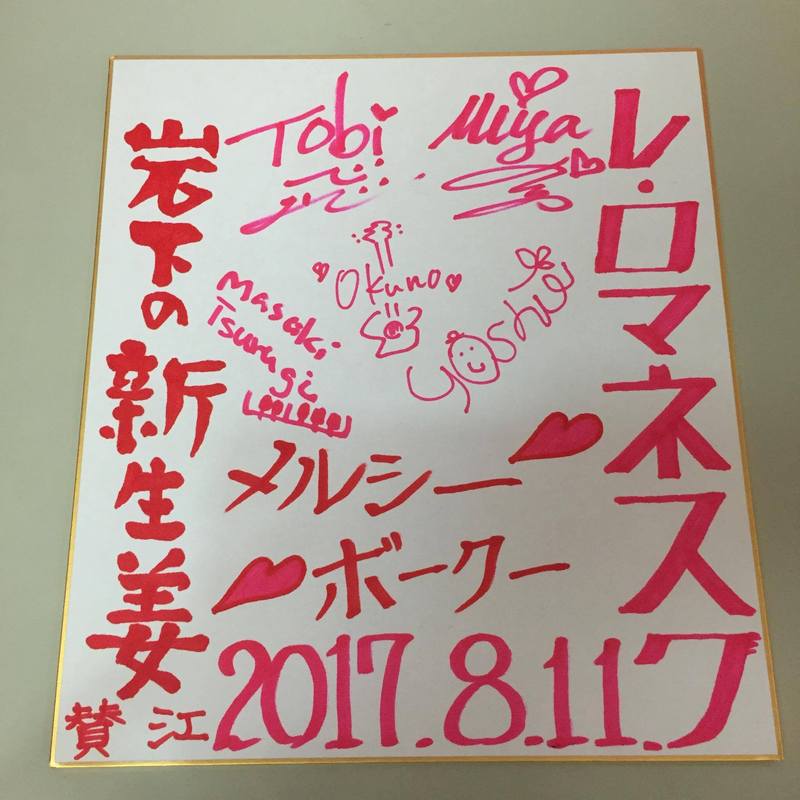 レ・ロマネスク
Tobi
Miya
Okuno
Yoshie
Masaki
Tsurugi
メルシー
ボークー
2017.8.11.
岩下の新生姜
賛江